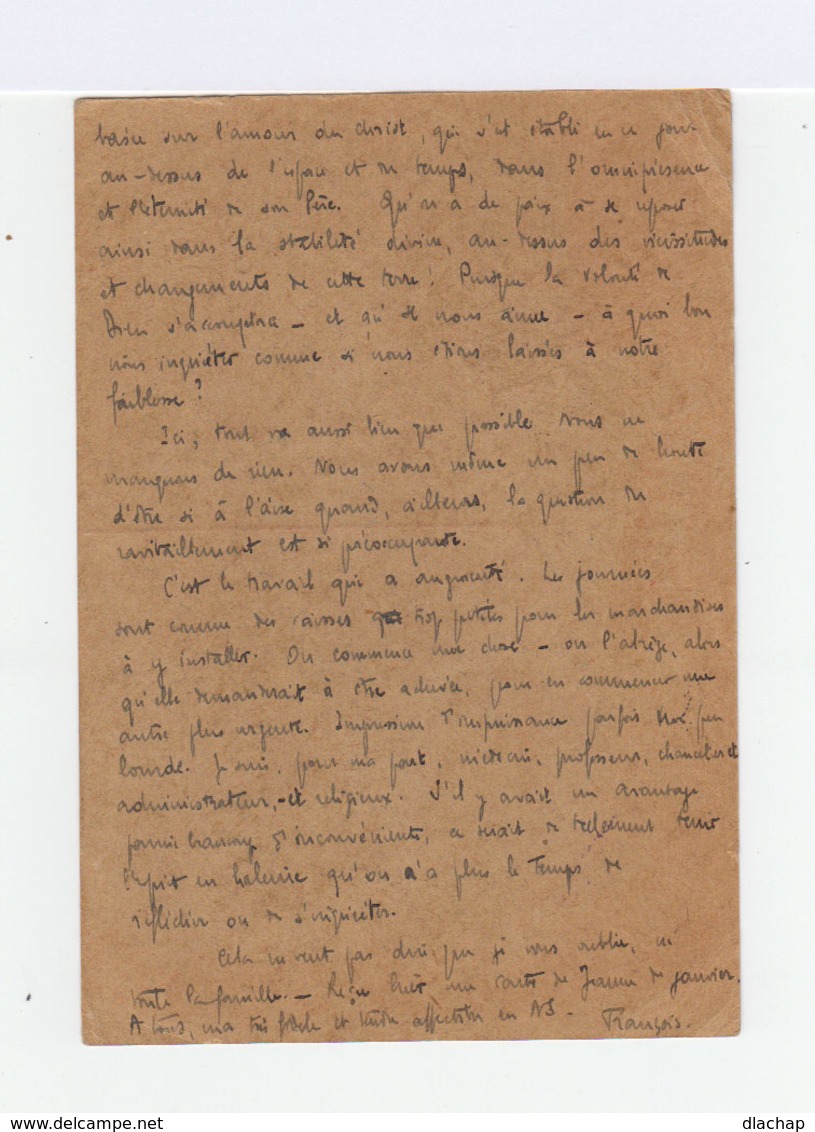 basée sur l'amour du Christ, qui s'est établi en ce jour
au-dessus de l'espace et du temps, dans l'omniprésence
et l'éternité de son Père. Qu'on a de paix à se reposer
ainsi dans la stabilité divine, au-dessus des vicissitudes
et changements de cette terre! Puisque la volonté de
Dieu s'accomplira - et qu'Il nous aime - à quoi bon
nous inquiéter comme si nous étions laissés à notre
faiblesse?
Ici, tout va aussi bien que possible. Nous ne
manquons de rien. Nous avons même un peu de honte
d'être si à l'aise quand, ailleurs, la question du
ravitaillement est si préoccupante.
C'est le travail qui a augmenté. Les journées
sont comme des caisses trop petites pour les marchandises
à y installer. On commence une chose - on l'abrège, alors
qu'elle demanderait à être achevée, pour en commencer une
autre plus urgente. Impression d'impuissance parfois un peu
lourde. Je suis, pour ma part, médecin, professeur, chancelier et
administrateur, - et religieux. S'il y avait un avantage
parmi beaucoup d'inconvénients, ce serait de tellement tenir
l'esprit en haleine qu'on n'a plus le temps de
réfléchir ou de s'inquiéter.
Cela ne veut pas dire que je vous oublie, ni
toute la famille. - Reçu hier une carte de Jeanne de janvier.
A tous, ma très fidèle et tendre affection en NS - François.
delcampe.net
dlachap